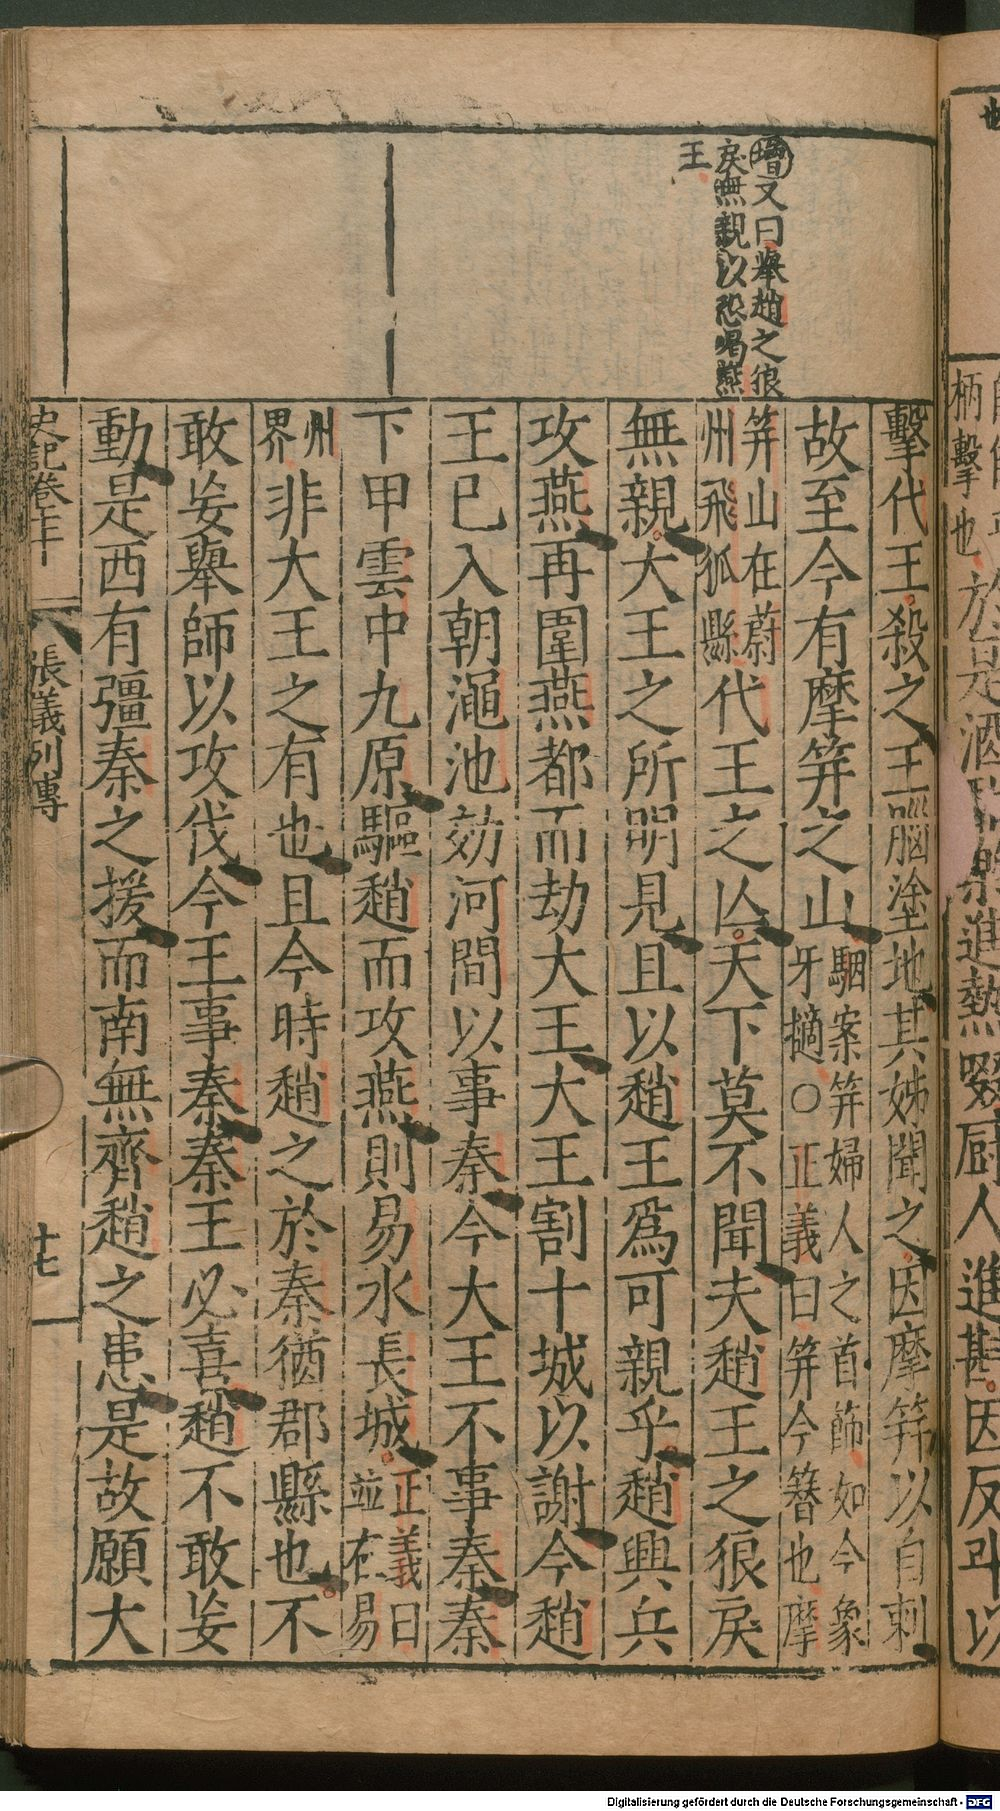 增又曰舉趙之狼
戾無親以恐喝燕
王
擊代王殺之王腦塗地其姊聞之因摩筓以自刺
故至今有摩筓之山
駰案筓婦人之首飾如今象
牙擿○正義曰筓今簪也摩
筓山在蔚
州飛狐縣
代王之亾天下莫不聞夫趙王之狼戾
無親大王之所明見且以趙王爲可親乎趙興兵
攻燕再圍燕都而劫大王大王割十城以謝今趙
王已入朝澠池効河間以事秦今大王不事秦秦
下甲雲中九原驅趙而攻燕則易水長城
正義曰
並在易
州
界
非大王之有也且今時趙之於秦猶郡縣也不
敢妄舉師以攻伐今王事秦秦王必喜趙不敢妄
動是西有彊秦之援而南無齊趙之患是故願大
史記卷七十
張儀列傳
十七
柄擊也
於是酒
進熱啜厨人進斟因反斗以
Digitalisierung gefördert durch die Deutsche Forschungsgemeinschaft - DFG